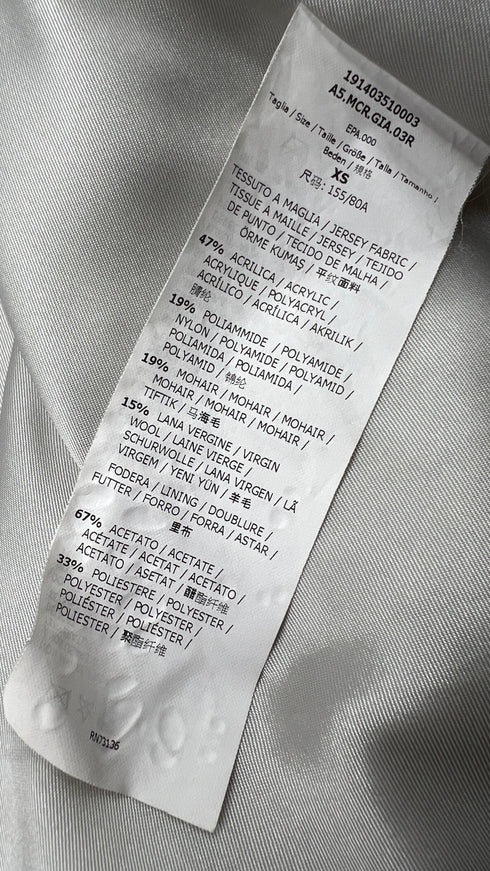 191403510003
A5.MCR.GIA.03R
EPA.000
Taglia / Size / Taille / Größe / Talla / Tamanho /
Beden / 规格
XS
尺码: 155/80A
TESSUTO A MAGLIA / JERSEY FABRIC /
TISSUE A MAILLE / JERSEY / TEJIDO
DE PUNTO / TECIDO DE MALHA /
ÖRME KUMAŞ / 平纹面料
47% ACRILICA / ACRYLIC /
ACRYLIQUE / POLYACRYL /
ACRÍLICO / ACRÍLICA / AKRILIK /
腈纶
19% POLIAMMIDE / POLYAMIDE /
NYLON / POLYAMIDE / POLYAMID /
POLIAMIDA / POLIAMIDA /
POLYAMID / 锦纶
19% MOHAIR / MOHAIR / MOHAIR /
MOHAIR / MOHAIR / MOHAIR /
TIFTIK / 马海毛
15% LANA VERGINE / VIRGIN
WOOL / LAINE VIERGE /
SCHURWOLLE / LANA VIRGEN / LÃ
VIRGEM / YENI YÜN / 羊毛
FODERA / LINING / DOUBLURE /
FUTTER / FORRO / FORRA / ASTAR /
里布
67% ACETATO / ACETATE /
ACÉTATE / ACETAT / ACETATO /
ACETATO / ASETAT / 醋酯纤维
33% POLIESTERE / POLYESTER /
POLYESTER / POLYESTER /
POLIÉSTER / POLIÉSTER /
POLIESTER / 聚酯纤维
RN73136